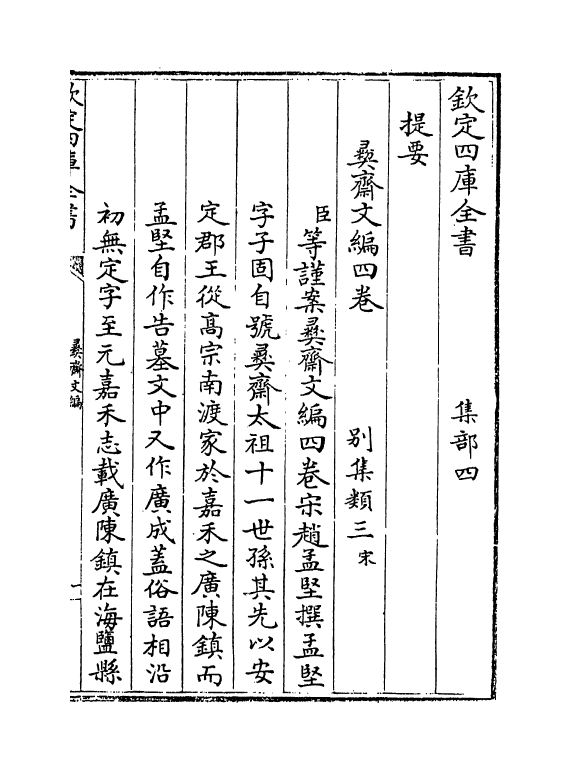 欽定四庫全書　集部四
提要
彛齋文編四卷　别集類三宋
臣等謹案彛齋文編四卷宋趙孟堅撰孟堅
字子固自號彛齋太祖十一世孫其先以安
定郡王從髙宗南渡家於嘉禾之廣陳鎮而
孟堅自作告墓文中又作廣成蓋俗語相沿
初無定字至元嘉禾志載廣陳鎮在海鹽縣
欽定四庫全書　彛齋文編　一